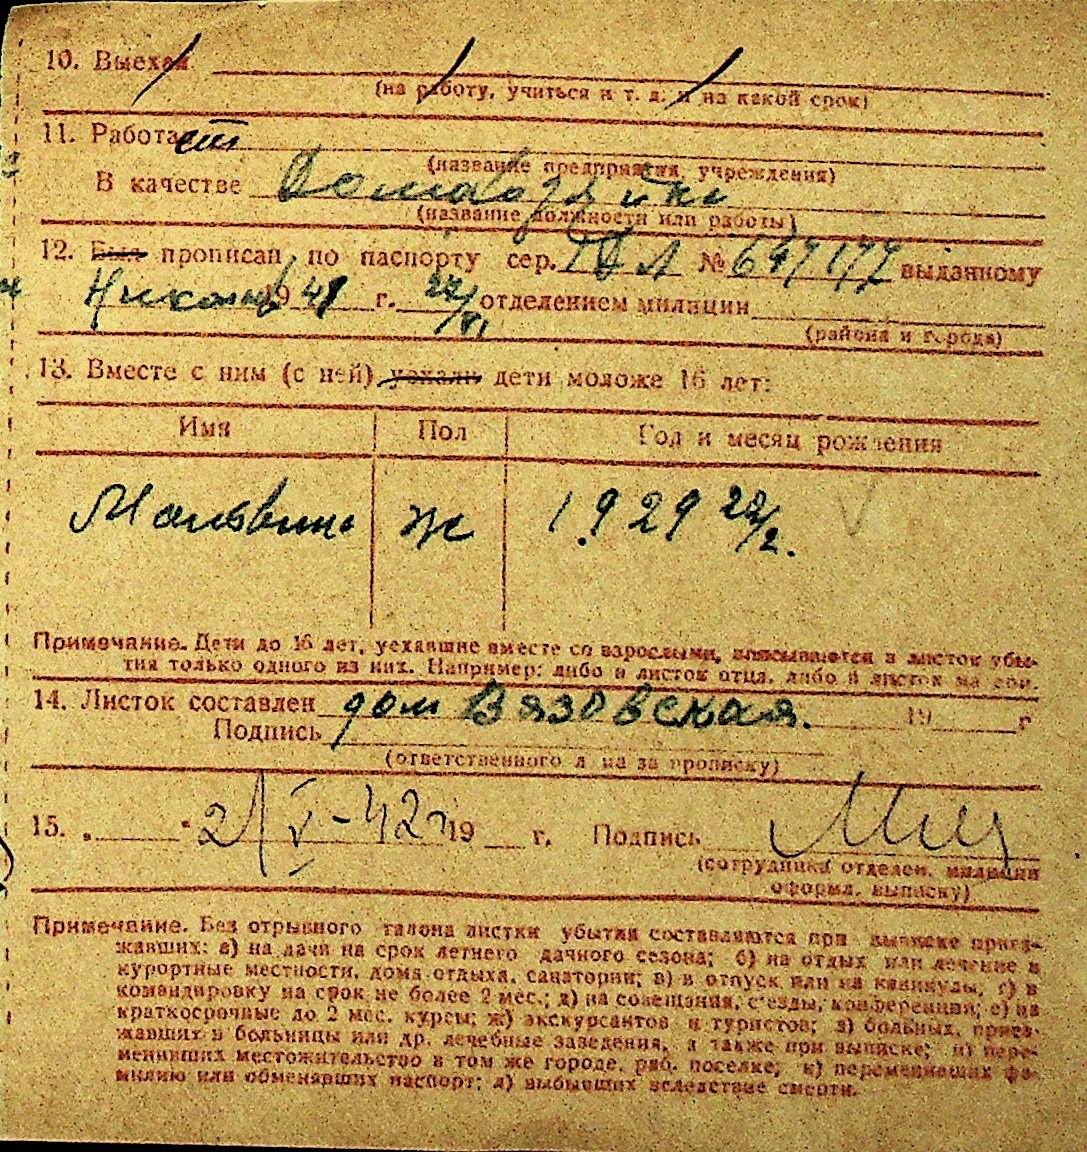 10. Выехал
(на работу, учиться и т. д. и на какой срок)
11. Работает
(название предприятия, учреждения)
В качестве Домохозяйки
(название должности или работы)
12. Был прописан по паспорту сер. № 647177 выданному
1941 г. 22/VI отделением милиции
(района и города)
13. Вместе с ним (с ней) уехали дети моложе 16 лет:
Имя Пол Год и месяц рождения
Мальвина ж 1929 22/2.
Примечание. Дети до 16 лет, уехавшие вместе со взрослыми, вписываются в листок убы-
тия только одного из них. Например: либо в листок отца, либо в листок матери.
14. Листок составлен дом Вязовская. 19 г
Подпись
(ответственного лица за прописку)
15. „ " 2/V-42г 19 г. Подпись
(сотрудника отделен. милиции
оформл. выписку)
Примечание. Без отрывного талона листки убытия составляются при выписке приез-
жавших: а) на дачи на срок летнего дачного сезона; б) на отдых или лечение в
курортные местности, дома отдыха, санатории; в) в отпуск или на каникулы; г) в
командировку на срок не более 2 мес.; д) на совещания, съезды, конференции; е) на
краткосрочные до 2 мес. курсы; ж) экскурсантов и туристов; з) больных, приез-
жавших в больницы или др. лечебные заведения, а также при выписке; и) пере-
менивших местожительство в том же городе, раб. поселке; к) переменивших фа-
милию или обменявших паспорт; л) выбывших вследствие смерти.